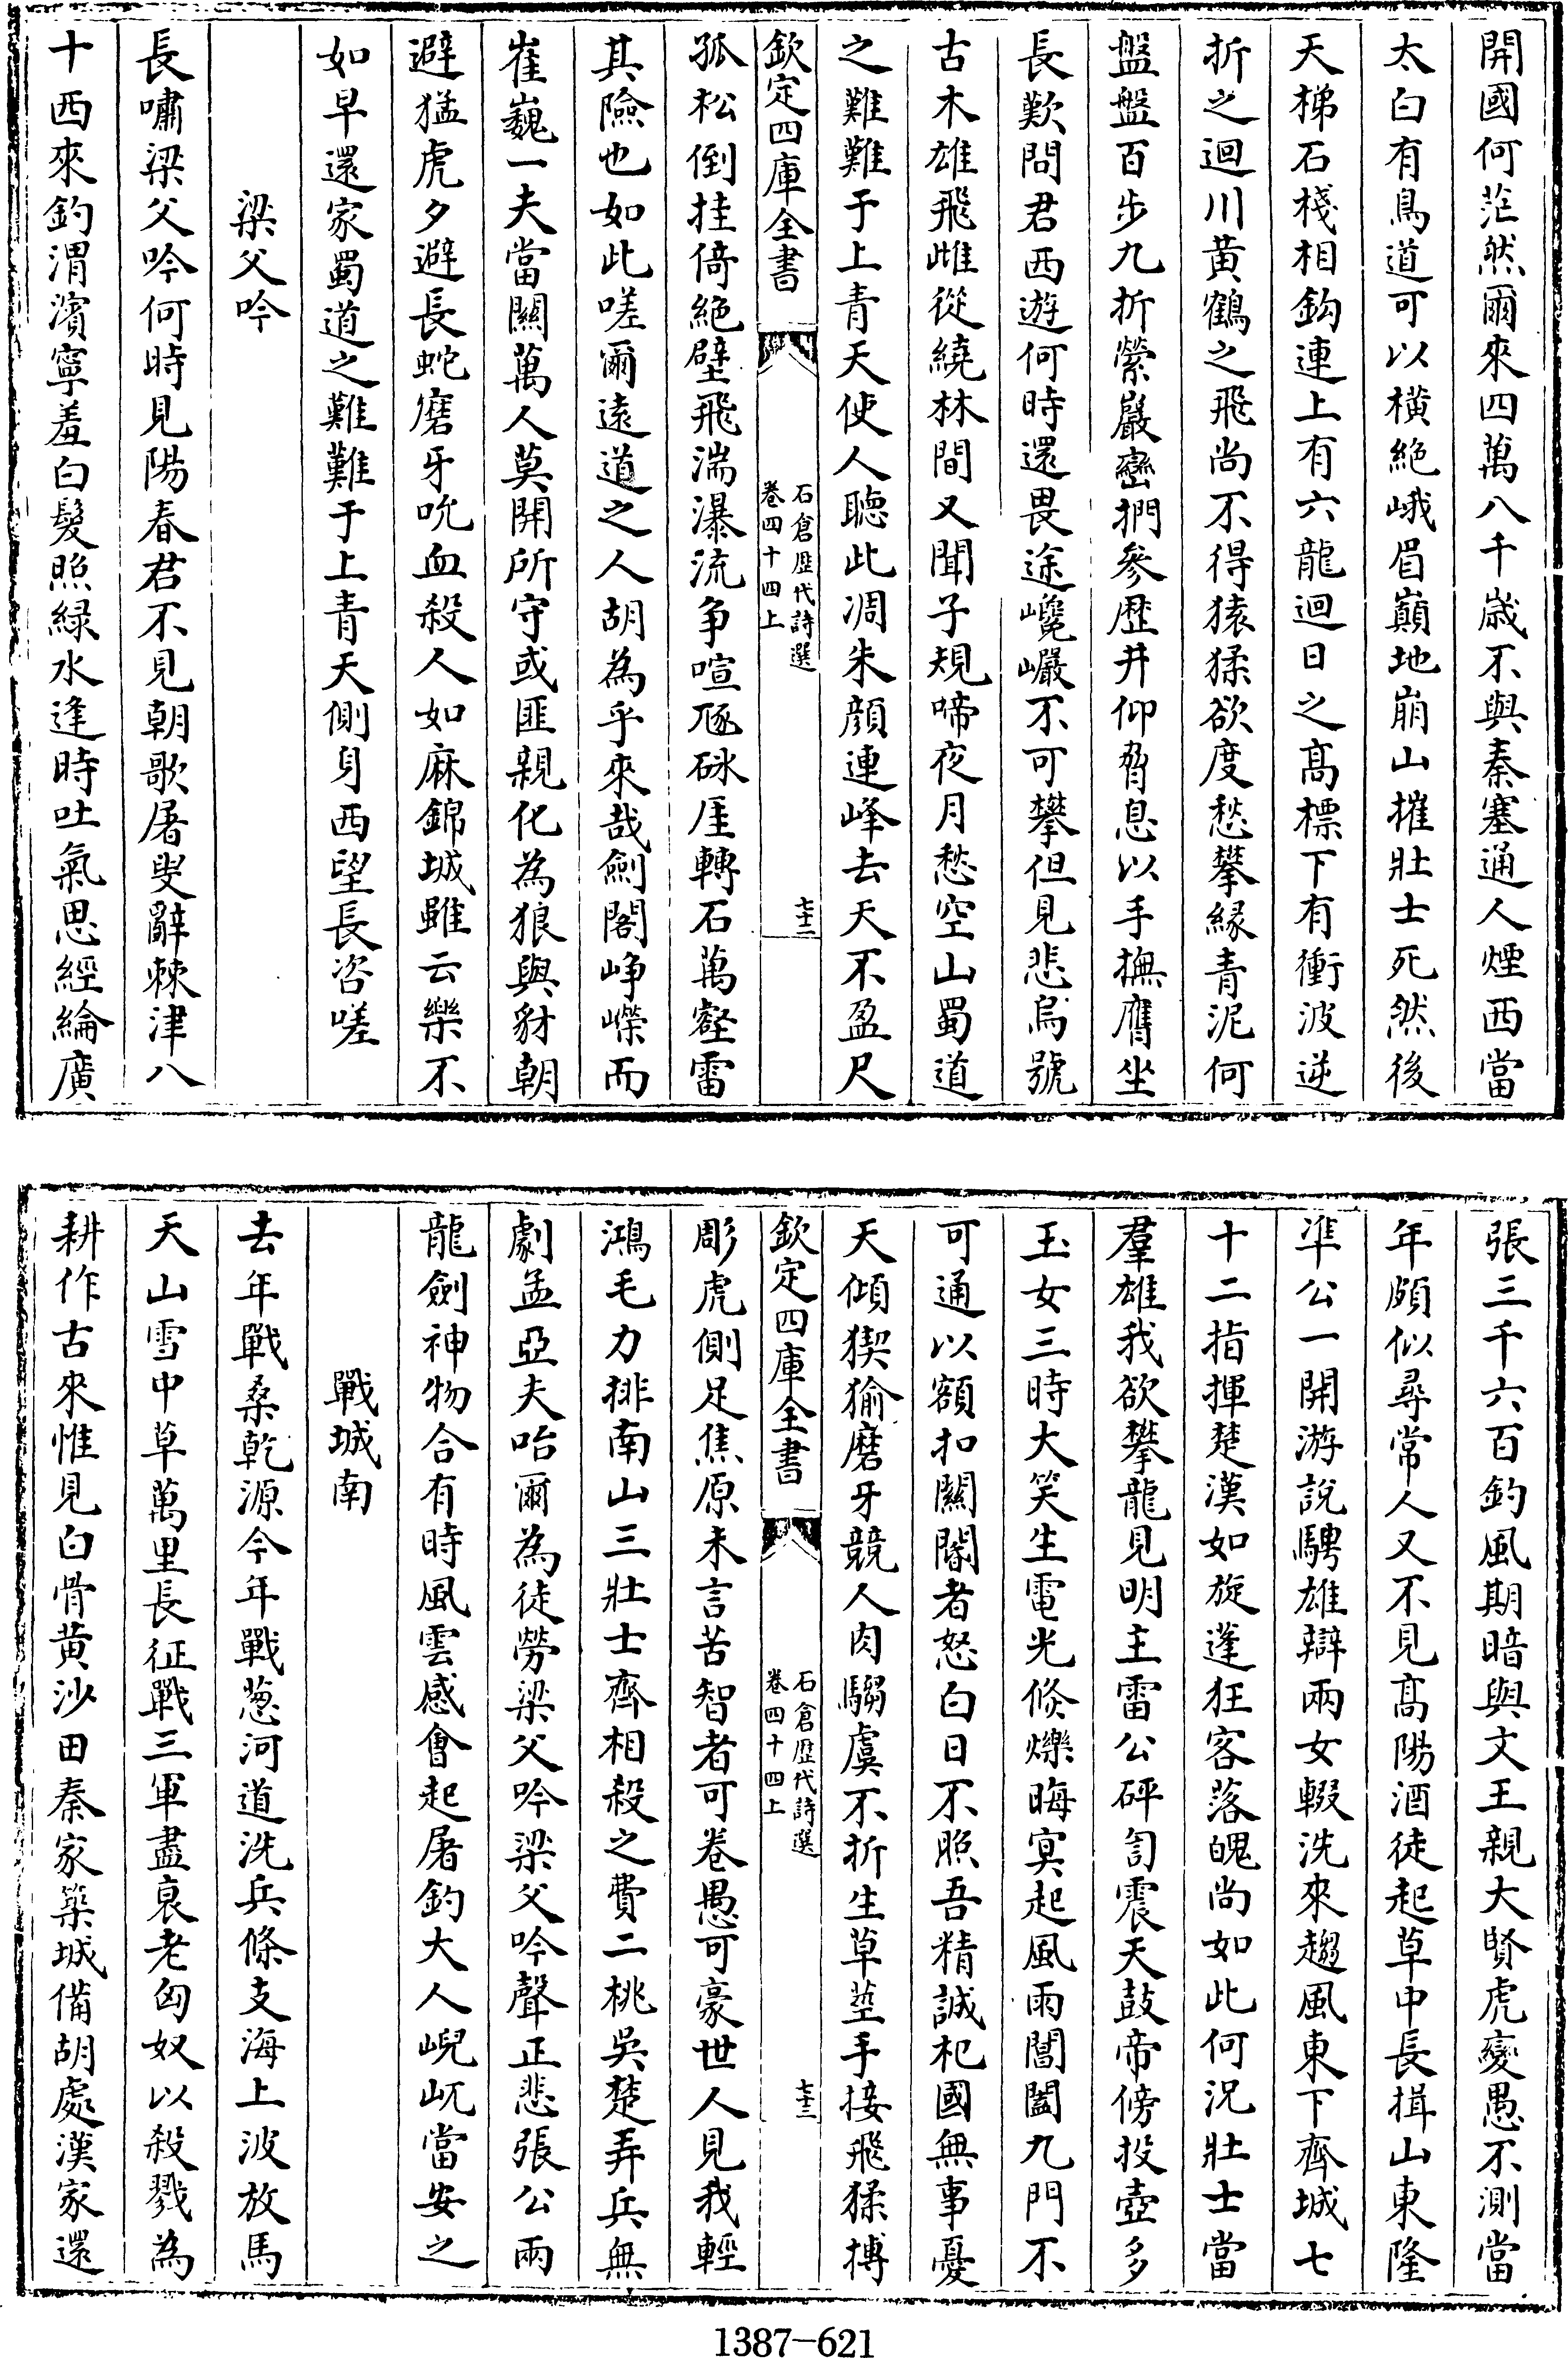 開國何茫然爾來四萬八千歳不與秦塞通人煙西當
太白有鳥道可以横絶峨眉巔地崩山摧壯士死然後
天梯石棧相鈎連上有六龍迴日之髙標下有衝波逆
折之迴川黄鶴之飛尚不得猿猱欲度愁攀縁青泥何
盤盤百步九折縈巖巒捫參歴井仰脅息以手撫膺坐
長歎問君西遊何時還畏途巉巗不可攀但見悲鳥號
古木雄飛雌從繞林間又聞子規啼夜月愁空山蜀道
之難難于上青天使人聽此凋朱顔連峰去天不盈尺
欽定四庫全書
石倉歴代詩選
卷四十四上
七十二
孤松倒挂倚絶壁飛湍瀑流爭喧豗砯厓轉石萬壑雷
其險也如此嗟爾遠道之人胡為乎來哉劍閣崢嶸而
崔巍一夫當關萬人莫開所守或匪親化為狼與豺朝
避猛虎夕避長蛇磨牙吮血殺人如麻錦城雖云樂不
如早還家蜀道之難難于上青天側身西望長咨嗟
梁父吟
長嘯梁父吟何時見陽春君不見朝歌屠叟辭棘津八
十西來釣渭濱寧羞白髮照緑水逢時吐氣思經綸廣
張三千六百釣風期暗與文王親大賢虎變愚不測當
年頗似尋常人又不見髙陽酒徒起草中長揖山東隆
凖公一開游說騁雄辯兩女輟洗來趨風東下齊城七
十二指揮楚漢如旋蓬狂客落魄尚如此何況壯士當
羣雄我欲攀龍見明主雷公砰訇震天鼓帝傍投壺多
玉女三時大笑生電光倐爍晦冥起風雨閶闔九門不
可通以額扣關閽者怒白日不照吾精誠杞國無事憂
天傾猰貐磨牙競人肉騶虞不折生草莖手接飛猱搏
欽定四庫全書
石倉歴代詩選
卷四十四上
七十三
彫虎側足焦原未言苦智者可卷愚可豪世人見我輕
鴻毛力排南山三壯士齊相殺之費二桃吳楚弄兵無
劇孟亞夫咍爾為徒勞梁父吟梁父吟聲正悲張公兩
龍劍神物合有時風雲感會起屠釣大人峴屼當安之
戰城南
去年戰桑乾源今年戰葱河道洗兵條支海上波放馬
天山雪中草萬里長征戰三軍盡衰老匈奴以殺戮為
耕作古來惟見白骨黄沙田秦家築城備胡處漢家還
1387-621